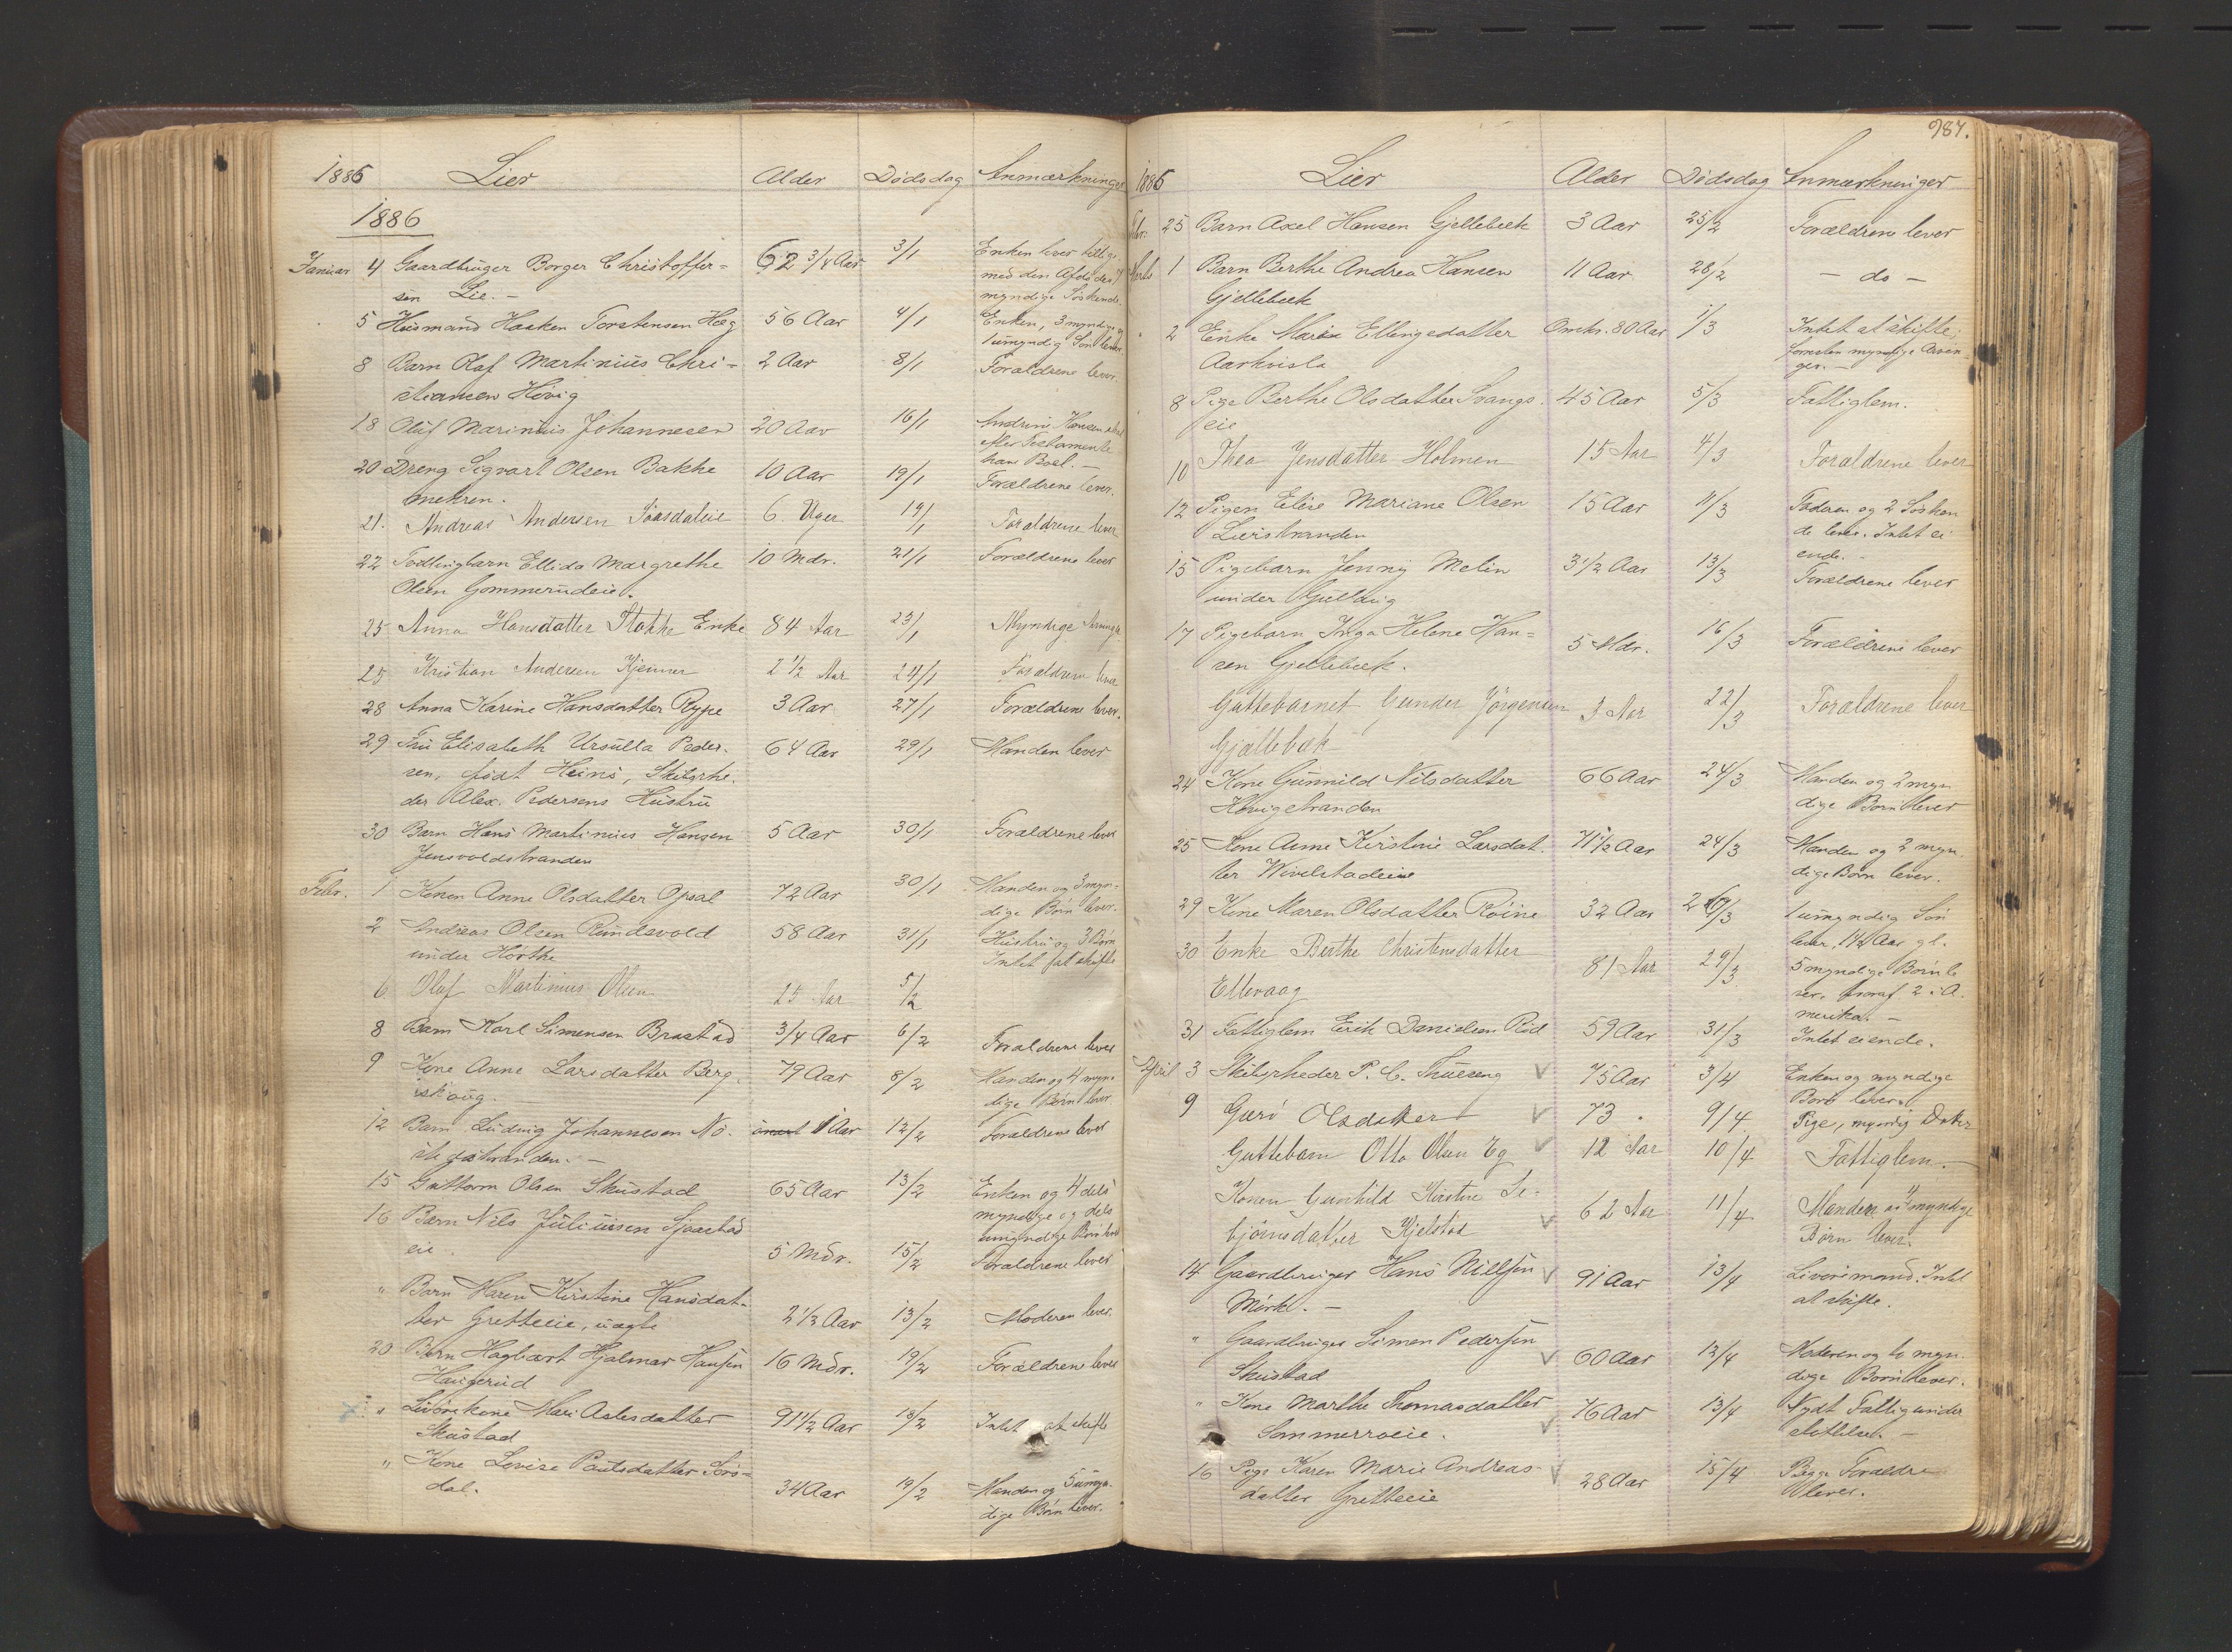 1886 Lier Alder Dödsdag Anmærkninger
1886
Januar 4 Gaardbruger Borger Christoffer= 62 3/4 Aar 3/1 Enken
sen Lie. — med den Afdødes
myndige Söskende.
5 Husmand Haaken Torstensen Hæg 56 Aar 4/1 Enken, 3 myndige
1 umyndig Sön lever
8 Barn Olaf Martinius Chri= 2 Aar 8/1 Forældrene lever.
stiansen Hövig
18 Oluf Marinius Johannesen 20 Aar 16/1 Andrine Hansen
efter Testamente
hans Boel. —
20 Dreng Sigvart Olsen Bakke 10 Aar 19/1 Forældrene lever.
mehren.
21. Andreas Andersen 6 Uger 19/1 Forældrene lever
22 Tvillingbarn Ellida Margrethe 10 Mdr. 21/1 Forældrene lever
Olsen Gommerudeie.
25 Anna Hansdatter Stokke Enke 84 Aar 23/1 Myndige Arvinger
25 Kristian Andersen Kjenner 2 1/2 Aar 24/1 Forældrene lever
28 Anna Karine Hansdatter Rype 3 Aar 27/1 Forældrene lever.
29 Fru Elisabeth Ursulla Peder- 64 Aar 29/1 Manden lever
sen, född Heins, Skibsrhe-
der Alex. Pedersens Hustru
30 Barn Hans Martinius Hansen 5 Aar 30/1 Forældrene lever
Jensvoldstranden
Febr. 1 Konen Anne Olsdatter Opsal 72 Aar 30/1 Manden og 3 myn=
dige Börn lever.
2 Andreas Olsen Rundsvold 58 Aar 31/1 Hustru og 3 Börn
under Hörthe Intet at skifte
6 Olaf Martinius Olsen 25 Aar 5/2
8 Barn Karl Simensen Brastad 3/4 Aar 6/2 Forældrene lever
9 Kone Anne Larsdatter Berg 79 Aar 8/2 Manden og 4 myn-
iskoug. — dige Börn lever
12 Barn Ludvig Johannesen Nö- 1 Aar 12/2 Forældrene lever
stegdstranden. —
15 Guttorm Olsen Skustad 65 Aar 13/2 Enken og 4 dels
myndige og dels
umyndige Börn lever
16 Barn Nils Juliussen Sjaastad
eie. 5 Mdr. 15/2 Forældrene lever
" Barn Maren Kirstine Hansdat-
ter Gretteeie, uægte 2 1/2 Aar 13/2 Moderen lever.
20 Barn Hagbart Hjalmar Hansen 16 Mdr. 19/2 Forældrene lever
Haugerud
" Livörekone Mari Aslesdatter 91 1/2 Aar 18/2 Intet at skifte
Skustad
" Kone Lovise Paulsdatter Sörs=
dal. 34 Aar 19/2 Manden og 5 umyn-
dige Börn lever.
987.
1886 Lier Alder Dödsdag Anmærkninger
Febr. 25 Barn Axel Hansen Gjellebæk 3 Aar 25/2 Forældrene lever
Marts 1 Barn Berthe Andrea Hansen 11 Aar 28/2 — do —
Gjellebæk
2 Enke Maria Ellingsdatter Omtr. 80 Aar 1/3 Intet at skifte;
Aarkvisla forresten myndige Arvin-
ger. —
8 Pige Berthe Olsdatter Svangs- 45 Aar 5/3 Fattiglem.
eie
10 Thea Jensdatter Holmen 15 Aar 4/3 Forældrene lever
12 Pigen Elise Mariane Olsen 15 Aar 11/3 Faderen og 2 Sösken
Lierstranden de lever. Intet ei
ende. -
15 Pigebarn Jenny Melin 3 1/2 Aar 13/3 Forældrene lever
under Gullaug
17 Pigebarn Inga Helene Han= 5 Mdr. 16/3 Forældrene lever
sen Gjellebæk.
Guttebarnet Gunder Jörgensen 3 Aar 22/3 Forældrene lever
Gjellebæk
24 Kone Gunnild Nilsdatter 66 Aar 24/3 Manden og 2 myn
Hövigstranden dige Börn lever
25 Kone Anne Kirstine Larsdat 71 1/2 Aar 24/3 Manden og 2 myn
ter Wivelstadeie dige Börn lever.
29 Kone Maren Olsdatter Röine 32 Aar 26/3 1 umyndig Sön
lever, 14 Aar gl.
30 Enke Berthe Christensdatter 81 Aar 29/3 5 myndige Börn le
Ellevaag ver, hvoraf 2 i A-
merika. —
31 Fattiglem Erik Danielsen Röd 59 Aar 31/3 Intet eiende.
April 3 Skibsrheder P. C. Thuesen 75 Aar 3/4 Enken og myndige
Börn lever.
9 Guro Olsdatter 73 " 9/4 Pige, myndig Dotter
Guttebarn Otto Olsen Eg 12 Aar 10/4 Fattiglem.
Konen Gunhild Kirstine Te- 62 Aar 11/4 Manden og 4 myndige
björnsdatter Kjelstad Börn lever.
14 Gaardbruger Hans Nillsen 91 Aar 13/4 Livöremand. Intet
Mörk. — at skifte.
" Gaardbruger Simen Pedersen 60 Aar 12/4 Moderen og to myn-
Skustad dige Börn lever.
" Kone Marthe Thomasdatter 76 Aar 13/4 Nydt Fattigunder
Sommerroeie. stöttelse. —
16 Pige Karen Marie Andreas- 28 Aar 15/4 Begge Forældre
datter Gretteeie lever.